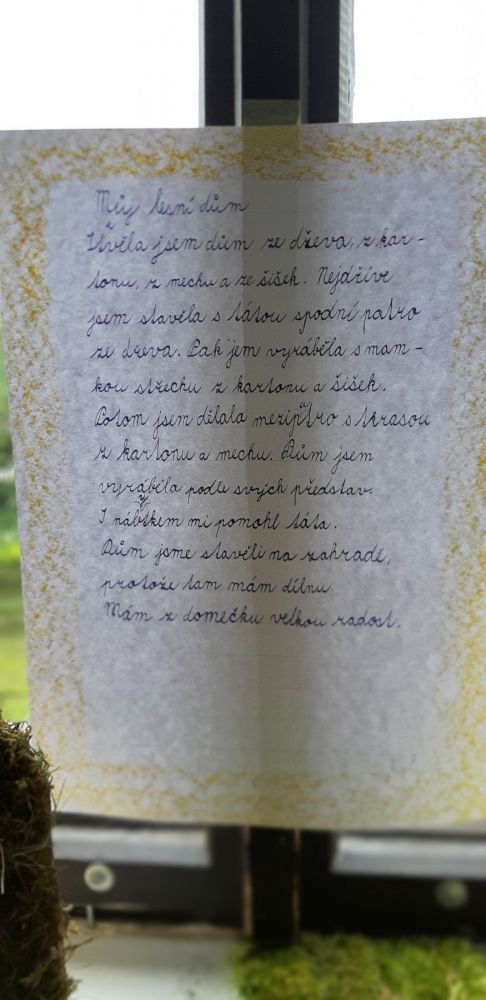 Můj lesní dům
Stvěla jsem dům ze dřeva, z kar-
tonu, z mechu a ze šišek. Nejdříve
jsem stavěla s tátou spodní patro
ze dřeva. Pak jem vyráběla s mam-
kou střechu z kartonu a šišek.
Potom jsem dělala mezipatro s terasou
z kartonu a mechu. Dům jsem
vyráběla podle svých představ.
I nábytkem mi pomohl táta.
Dům jsme stavěli na zahradě,
protože tam mám dílnu.
Mám z domečku velkou radost.